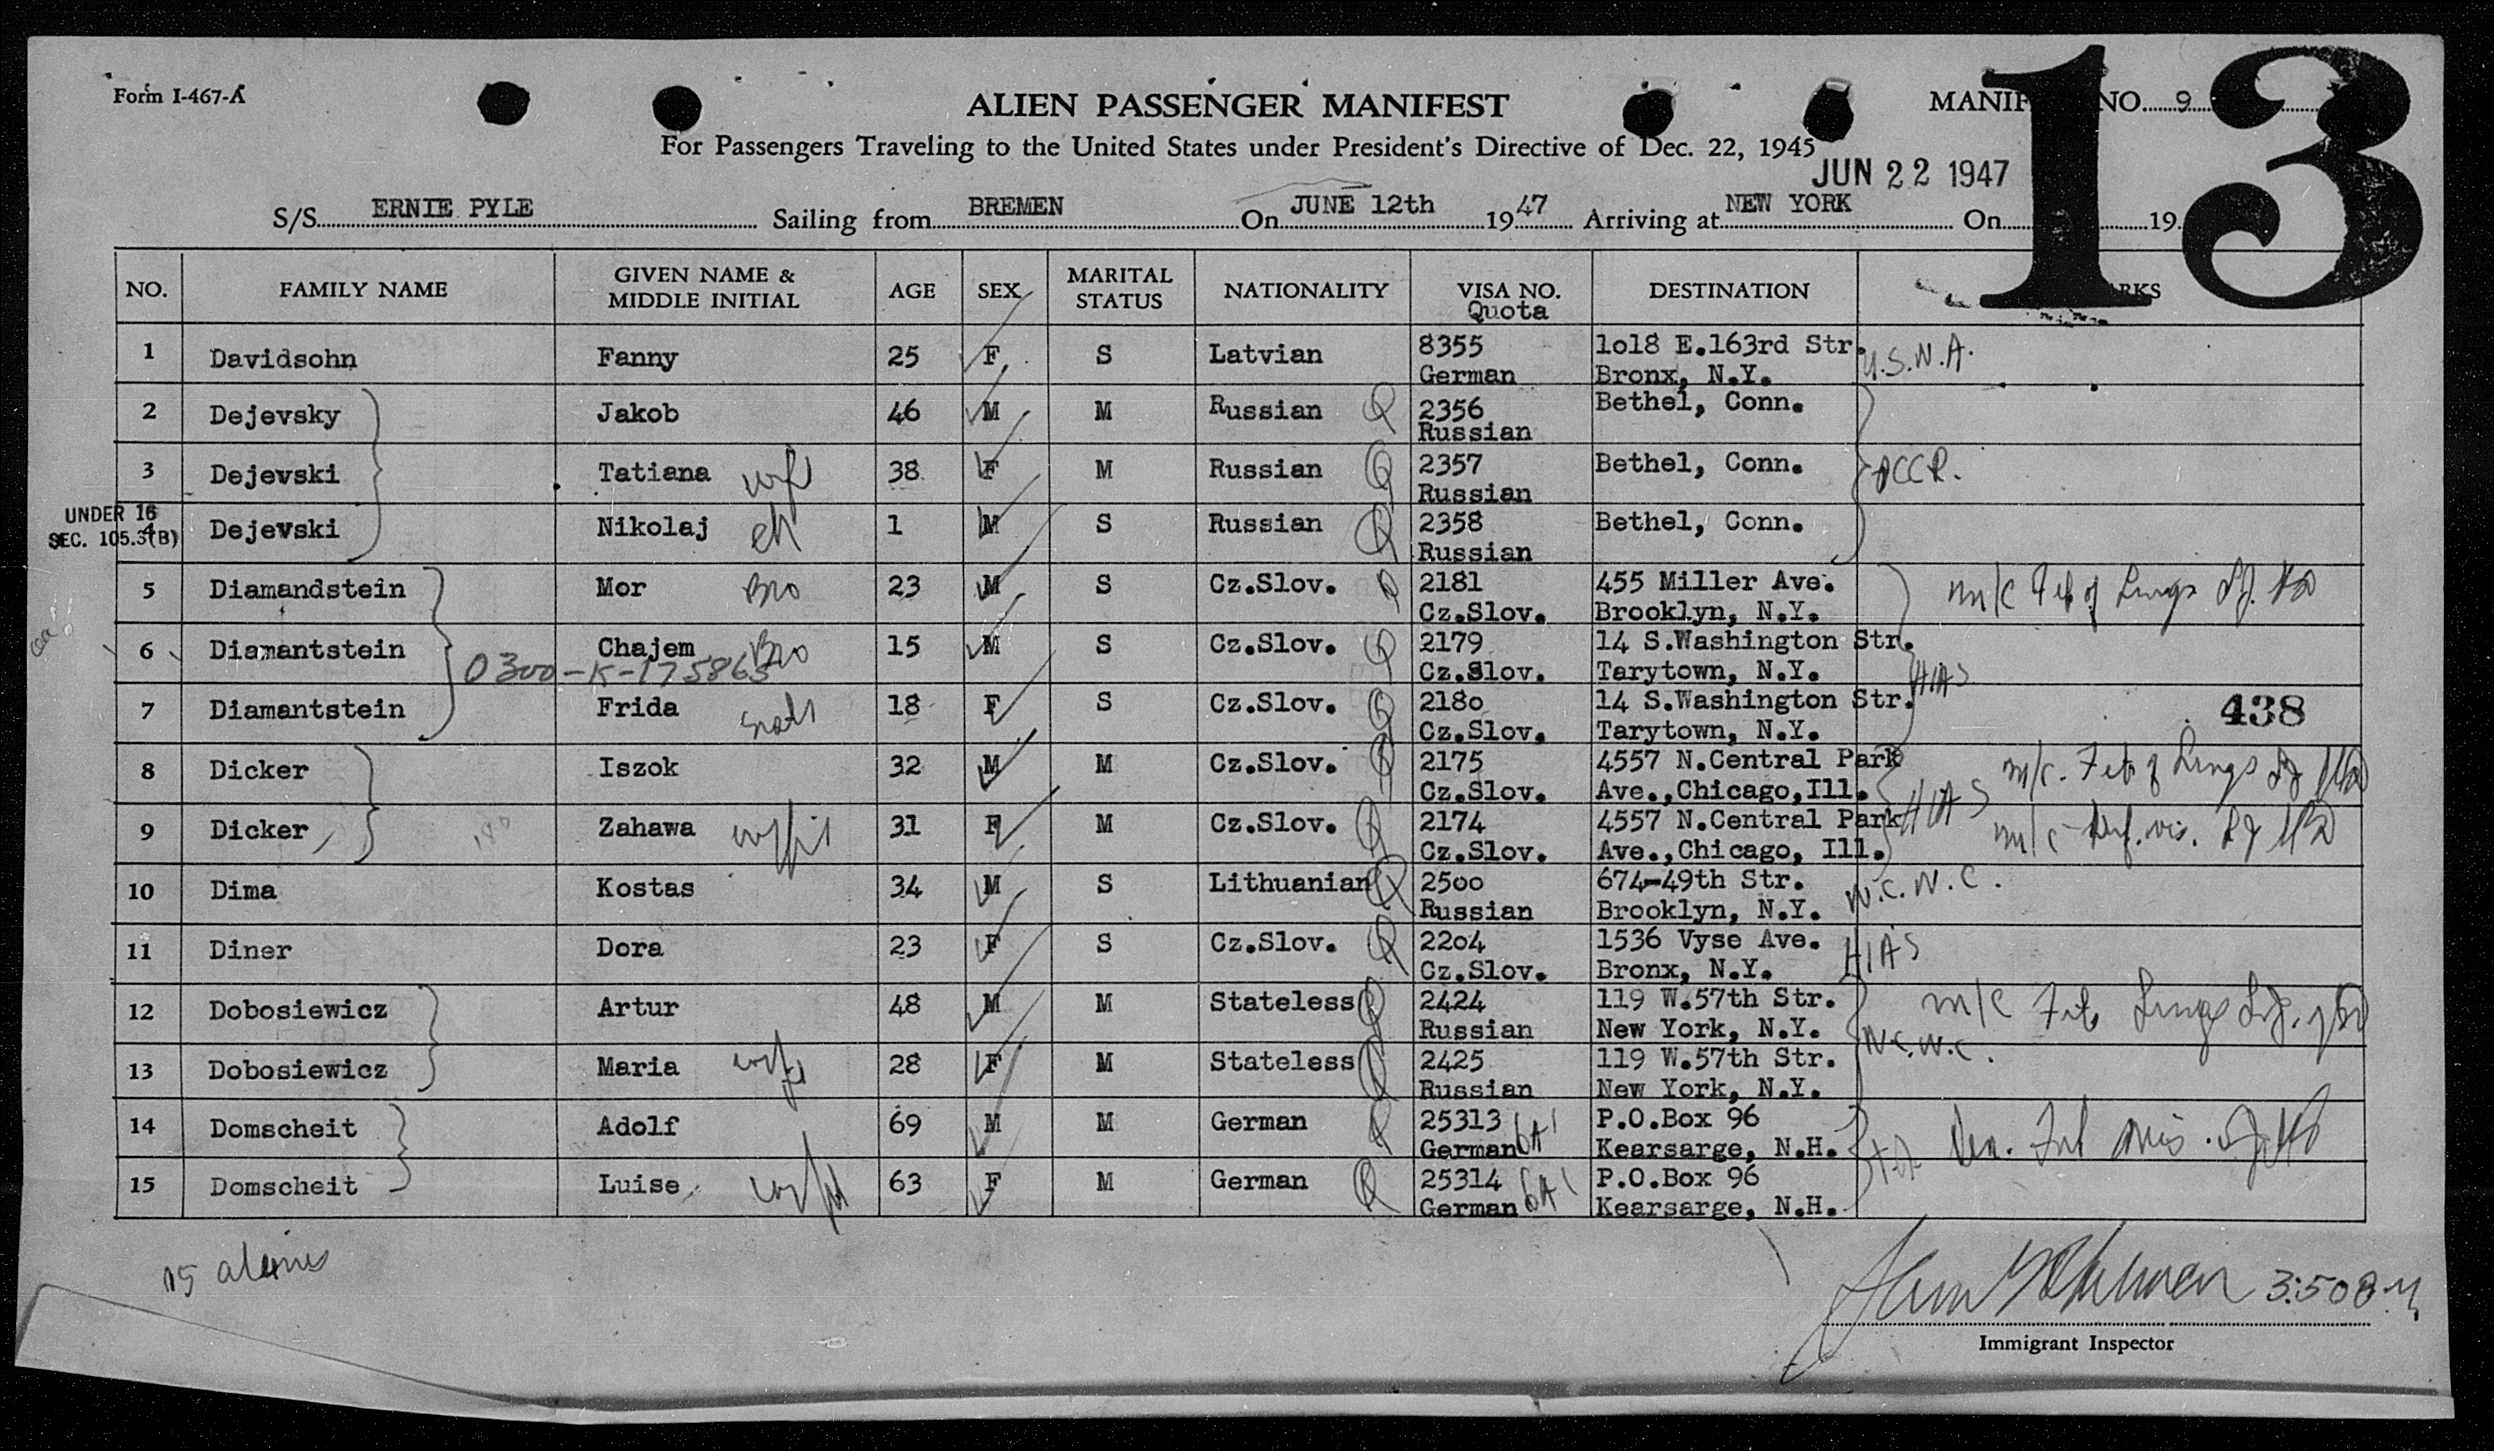 Form I-467-A
ALIEN PASSENGER MANIFEST
MANIF NO. 9
13
For Passengers Traveling to the United States under President's Directive of Dec. 22, 1945
JUN 22 1947
S/S ERNIE PYLE Sailing from BREMEN On JUNE 12th 1947 Arriving at NEW YORK On 19
NO. FAMILY NAME GIVEN NAME & MIDDLE INITIAL AGE SEX MARITAL STATUS NATIONALITY VISA NO. Quota DESTINATION RKS
1 Davidsohn Fanny 25 F S Latvian 8355 1o18 E.163rd Str. U.S.N.A.
German Bronx, N.Y.
2 Dejevsky Jakob 46 M M Russian Q 2356 Bethel, Conn.
Russian
3 Dejevski Tatiana wf 38 F M Russian Q 2357 Bethel, Conn.
Russian
UNDER 16
SEC. 105.3(B)
4 Dejevski Nikolaj ch 1 M S Russian Q 2358 Bethel, Conn.
Russian
5 Diamandstein Mor Bro 23 M S Cz.Slov. Q 2181 455 Miller Ave. m/c
Cz.Slov. Brooklyn, N.Y.
6 Diamantstein Chajem Bro 15 M S Cz.Slov. Q 2179 14 S.Washington Str.
0300-K-175863 Cz.Slov. Tarytown, N.Y. HIAS
7 Diamantstein Frida 18 F S Cz.Slov. Q 218o 14 S.Washington Str. 438
Cz.Slov. Tarytown, N.Y.
8 Dicker Iszok 32 M M Cz.Slov. Q 2175 4557 N.Central Park m/c.
Cz.Slov. Ave.,Chicago,Ill. HIAS
9 Dicker Zahawa wife 31 F M Cz.Slov. Q 2174 4557 N.Central Park m/c
Cz.Slov. Ave.,Chicago, Ill.
10 Dima Kostas 34 M S Lithuanian Q 25oo 674-49th Str. N.C.W.C.
Russian Brooklyn, N.Y.
11 Diner Dora 23 F S Cz.Slov. Q 22o4 1536 Vyse Ave. HIAS
Cz.Slov. Bronx, N.Y.
12 Dobosiewicz Artur 48 M M Stateless Q 2424 119 W.57th Str. m/c
Russian New York, N.Y.
13 Dobosiewicz Maria wife 28 F M Stateless Q 2425 119 W.57th Str. N.C.W.C.
Russian New York, N.Y.
14 Domscheit Adolf 69 M M German Q 25313 P.O.Box 96
German 6A1 Kearsarge, N.H.
15 Domscheit Luise wife 63 F M German Q 25314 P.O.Box 96
German 6A1 Kearsarge, N.H.
15 aliens
3:50
Immigrant Inspector